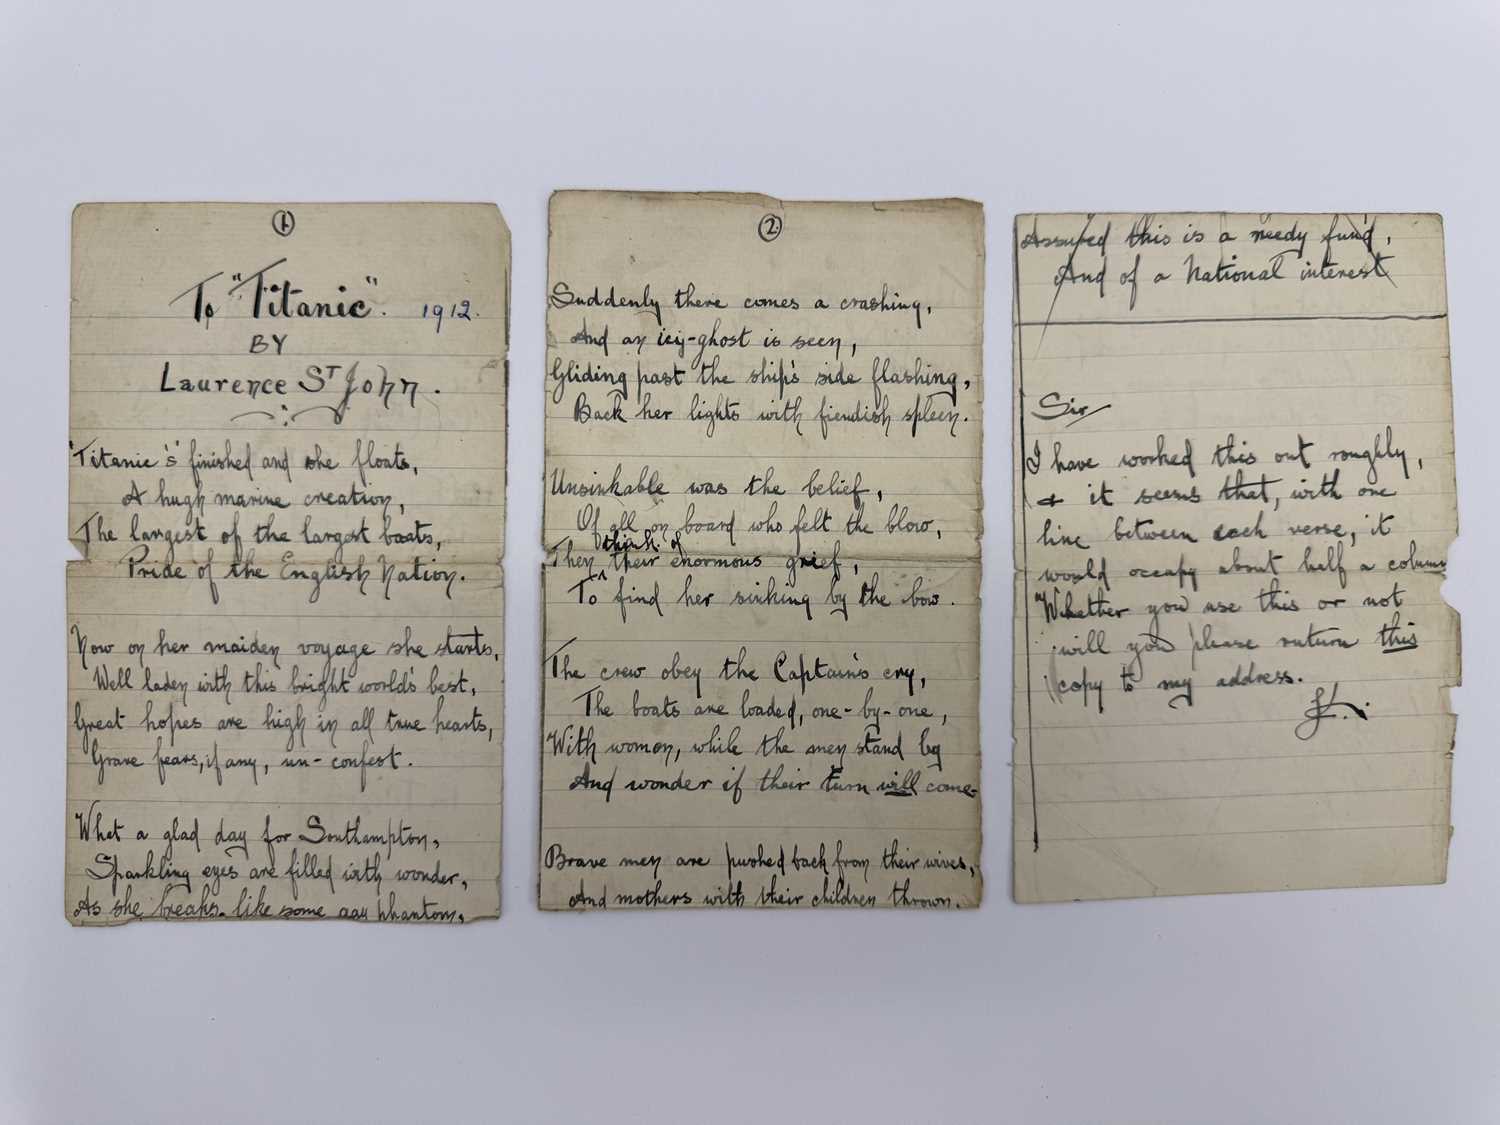 1
To "Titanic". 1912.
BY
Laurence St John.
"Titanic's" finished and she floats,
A hugh marine creation,
The largest of the largest boats,
Pride of the English Nation.
Now on her maiden voyage she starts,
Well laden with this bright world's best,
Great hopes are high in all true hearts,
Grave fears, if any, un-confest.
What a glad day for Southampton,
Sparkling eyes are filled with wonder,
As she breaks like some gay phantom,
2.
Suddenly there comes a crashing,
And an icy-ghost is seen,
Gliding past the ship's side flashing,
Back her lights with fiendish spleen.
Unsinkable was the belief,
Of all on board who felt the blow,
think of
Then their enormous grief,
To find her sinking by the bow.
The crew obey the Captain's cry,
The boats are loaded, one-by-one,
With women, while the men stand by
And wonder if their turn will come.
Brave men are pushed back from their wives,
And mothers with their children thrown.
Assured this is a needy fund,
And of a National interest
Sir
I have worked this out roughly,
& it seems that, with one
line between each verse, it
would occupy about half a column
Whether you use this or not
will you please return this
copy to my address.